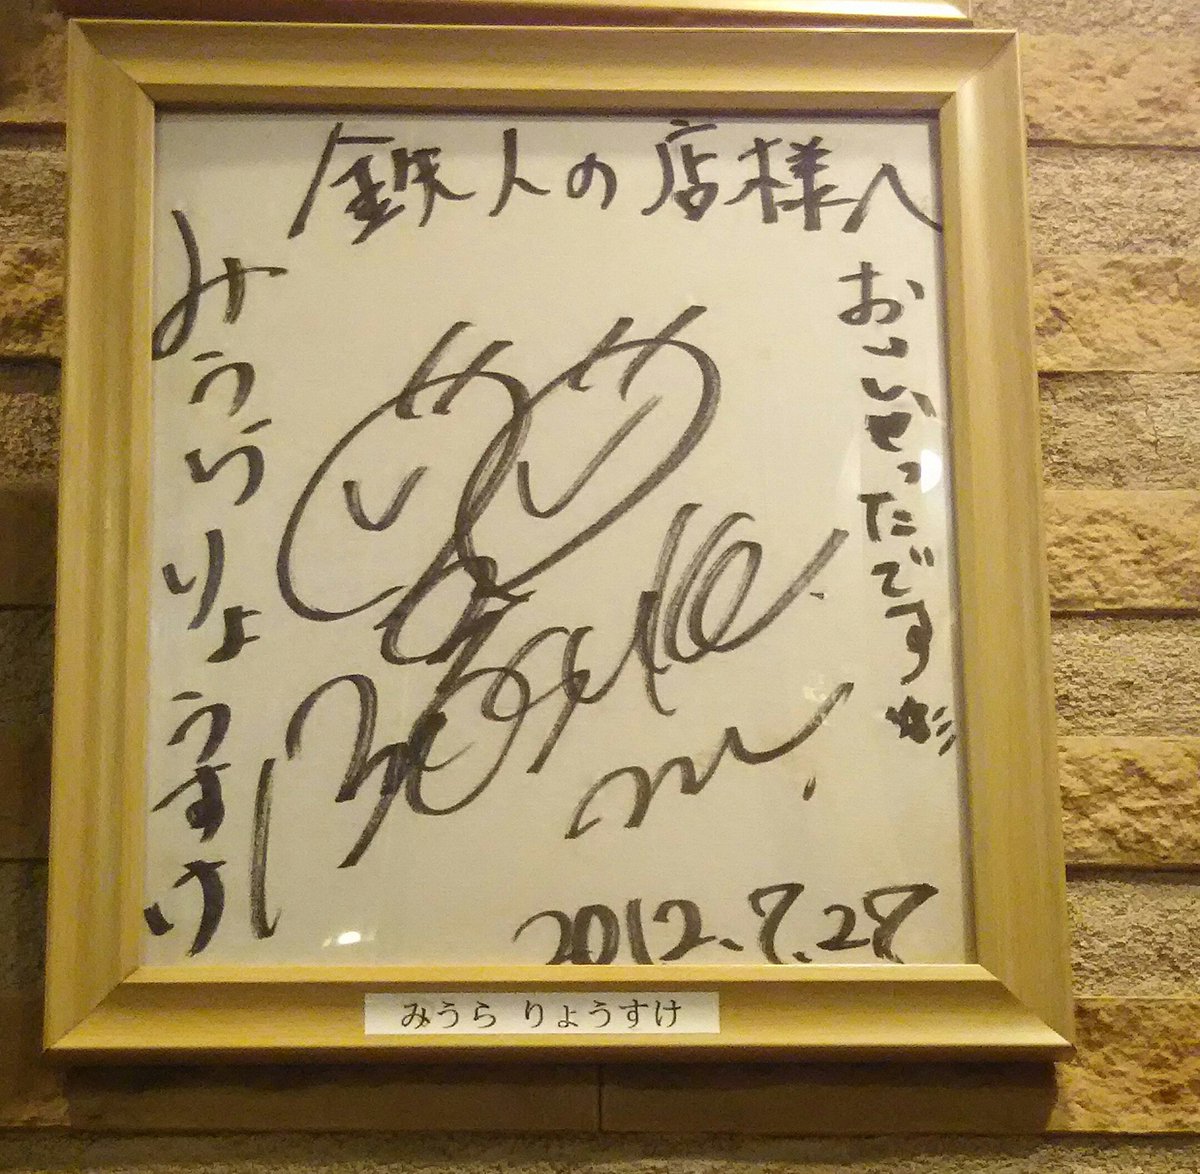 鉄人の店様へ
おいしかったですッ!!
みうらりょうすけ
2012.7.27
みうら りょうすけ